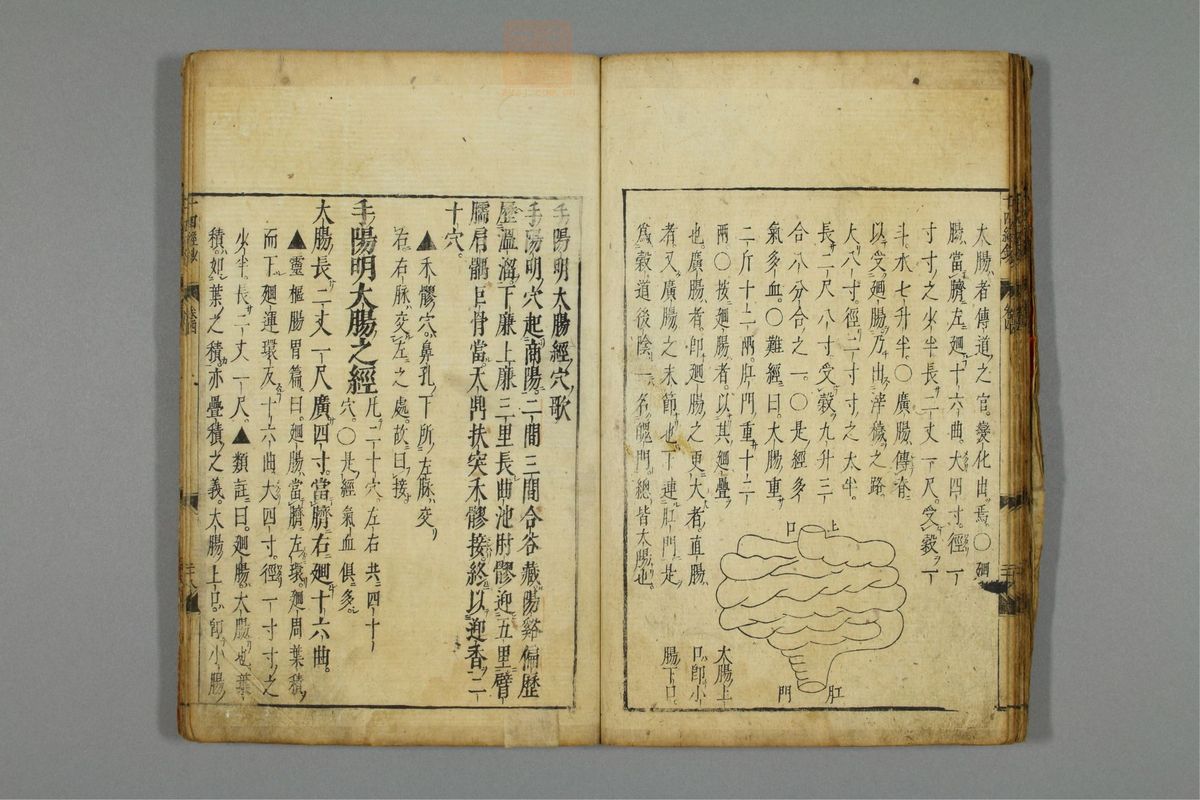 大腸者傳道之官變化出焉○廻
腸當臍左廻十六曲大四寸徑一
寸寸之少半長二丈一尺受穀一
斗水七升半○廣腸傳脊
以受廻腸乃出滓穢之路
大八寸徑二寸寸之太半
長二尺八寸受穀九升三
合八分合之一○是經多
氣多血○難經曰大腸重
二斤十二兩肛門重十二
兩○按廻腸者以其廻疊
也廣腸者即廻腸之更大者直腸
者又廣腸之末節也下連肛門是
爲穀道後陰一名魄門總皆大腸也
上口
肛門
大腸上
口即小
腸下口
手陽明大腸經穴歌
手陽明穴起商陽二間三間合谷藏陽谿偏歷
歷溫溜下廉上廉三里長曲池肘髎迎五里臂
臑肩髃巨骨當天鼎扶突禾髎接終以迎香二
十穴
▲禾髎穴鼻孔下所左脉交
右右脉交左之處故曰接
手陽明大腸之經
凡二十穴左右共四十
穴○是經氣血俱多
大腸長二丈一尺廣四寸當臍右廻十六曲
▲靈樞腸胃篇曰廻腸當臍左環廻周葉積
而下廻運環反十六曲大四寸徑一寸寸之
少半長二丈一尺▲類註曰廻腸大腸也葉
積如葉之積亦疊積之義大腸上口即小腸